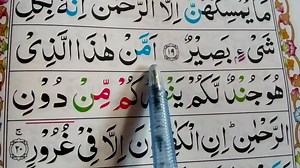 مَا يُمْسِكُهُنَّ اِلَّا الرَّحْمٰنُ اِنَّهٗ بِكُلِّ
شَیْءٍۭ بَصِیْرٌ ﴿۱۹﴾ اَمَّنْ هٰذَا الَّذِیْ
هُوَ جُنْدٌ لَّكُمْ یَنْصُرُكُمْ مِّنْ دُوْنِ
الرَّحْمٰنِ اِنِ الْكٰفِرُوْنَ اِلَّا فِیْ غُرُوْرٍ